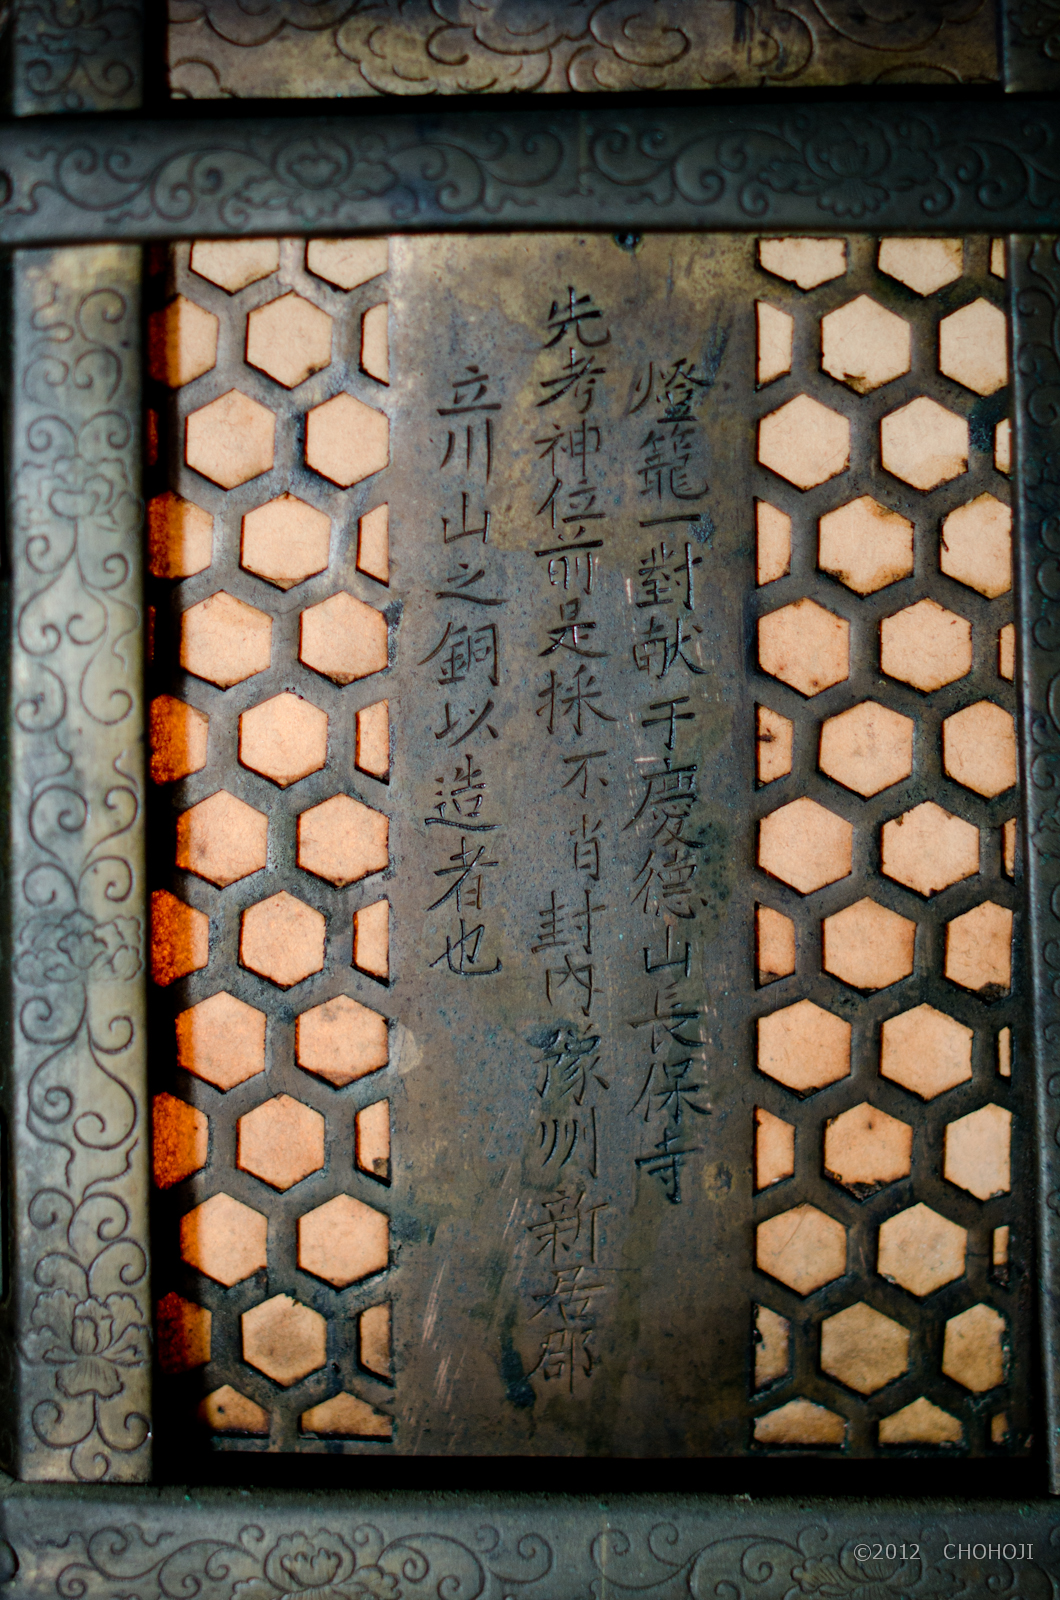 燈籠一對献于慶德山長保寺
先考神位前是採不肖封内豫州新居郡
立川山之銅以造者也
©2012 CHOHOJI